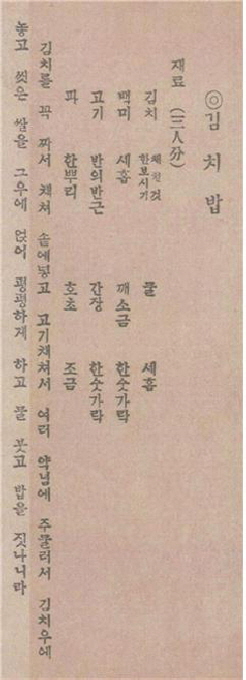 ◎김치밥
재료 (二人分)
김치 채친것 한보시기 물 세홉
백미 세홉 깨소금 한숫가락
고기 반의반근 간장 한숫가락
파 한뿌리 호초 조금
김치를 꼭 짜서 채쳐 솟에넣고 고기채쳐서 여러 약념에 주물러서 김치우에
놓고 씻은 쌀을 그우에 얹어 평평하게 하고 물 붓고 밥을 짓나니라